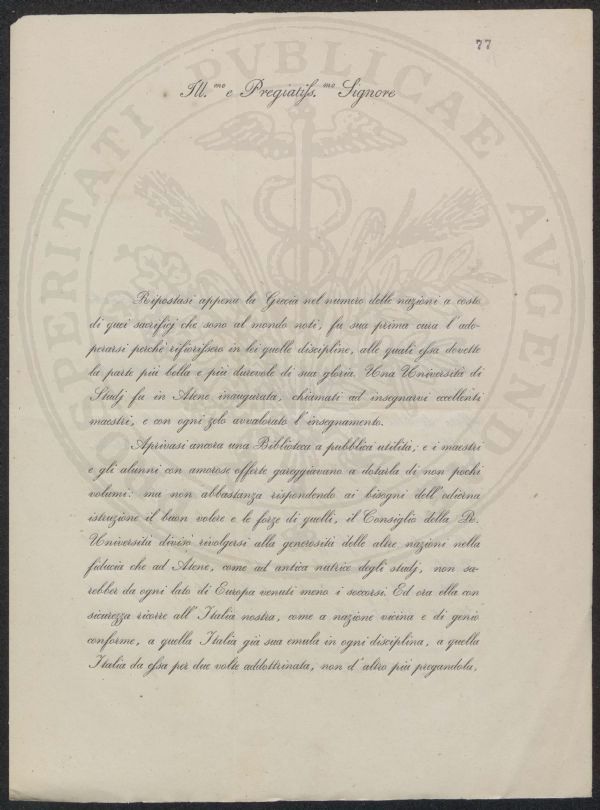 77
Ill.mo e Pregiatiss.mo Signore
Ripostasi appena la Grecia nel numero delle nazioni a costo
di quei sacrifizj che sono al mondo noti, fu sua prima cura l'ado-
perarsi perchè rifiorissero in lei quelle discipline, alle quali essa dovette
la parte più bella e più durevole di sua gloria. Una Università di
Studj fu in Atene inaugurata, chiamati ad insegnarvi eccellenti
maestri, e con ogni zelo avvalorato l'insegnamento.
Aprivasi ancora una Biblioteca a pubblica utilità; e i maestri
e gli alunni con amorose offerte gareggiavano a dotarla di non pochi
volumi: ma non abbastanza rispondendo ai bisogni dell'odierna
istruzione il buon volere e le forze di quelli, il Consiglio della R.
Università divisò rivolgersi alla generosità delle altre nazioni nella
fiducia che ad Atene, come ad antica nutrice degli studj, non sa-
rebber da ogni lato di Europa venuti meno i soccorsi. Ed ora ella con
sicurezza ricorre all'Italia nostra, come a nazione vicina e di genio
conforme, a quella Italia già sua emula in ogni disciplina, a quella
Italia da essa per due volte addottrinata, non d'altro più pregandola,
PROSPERITATI PVBLICAE AVGEND